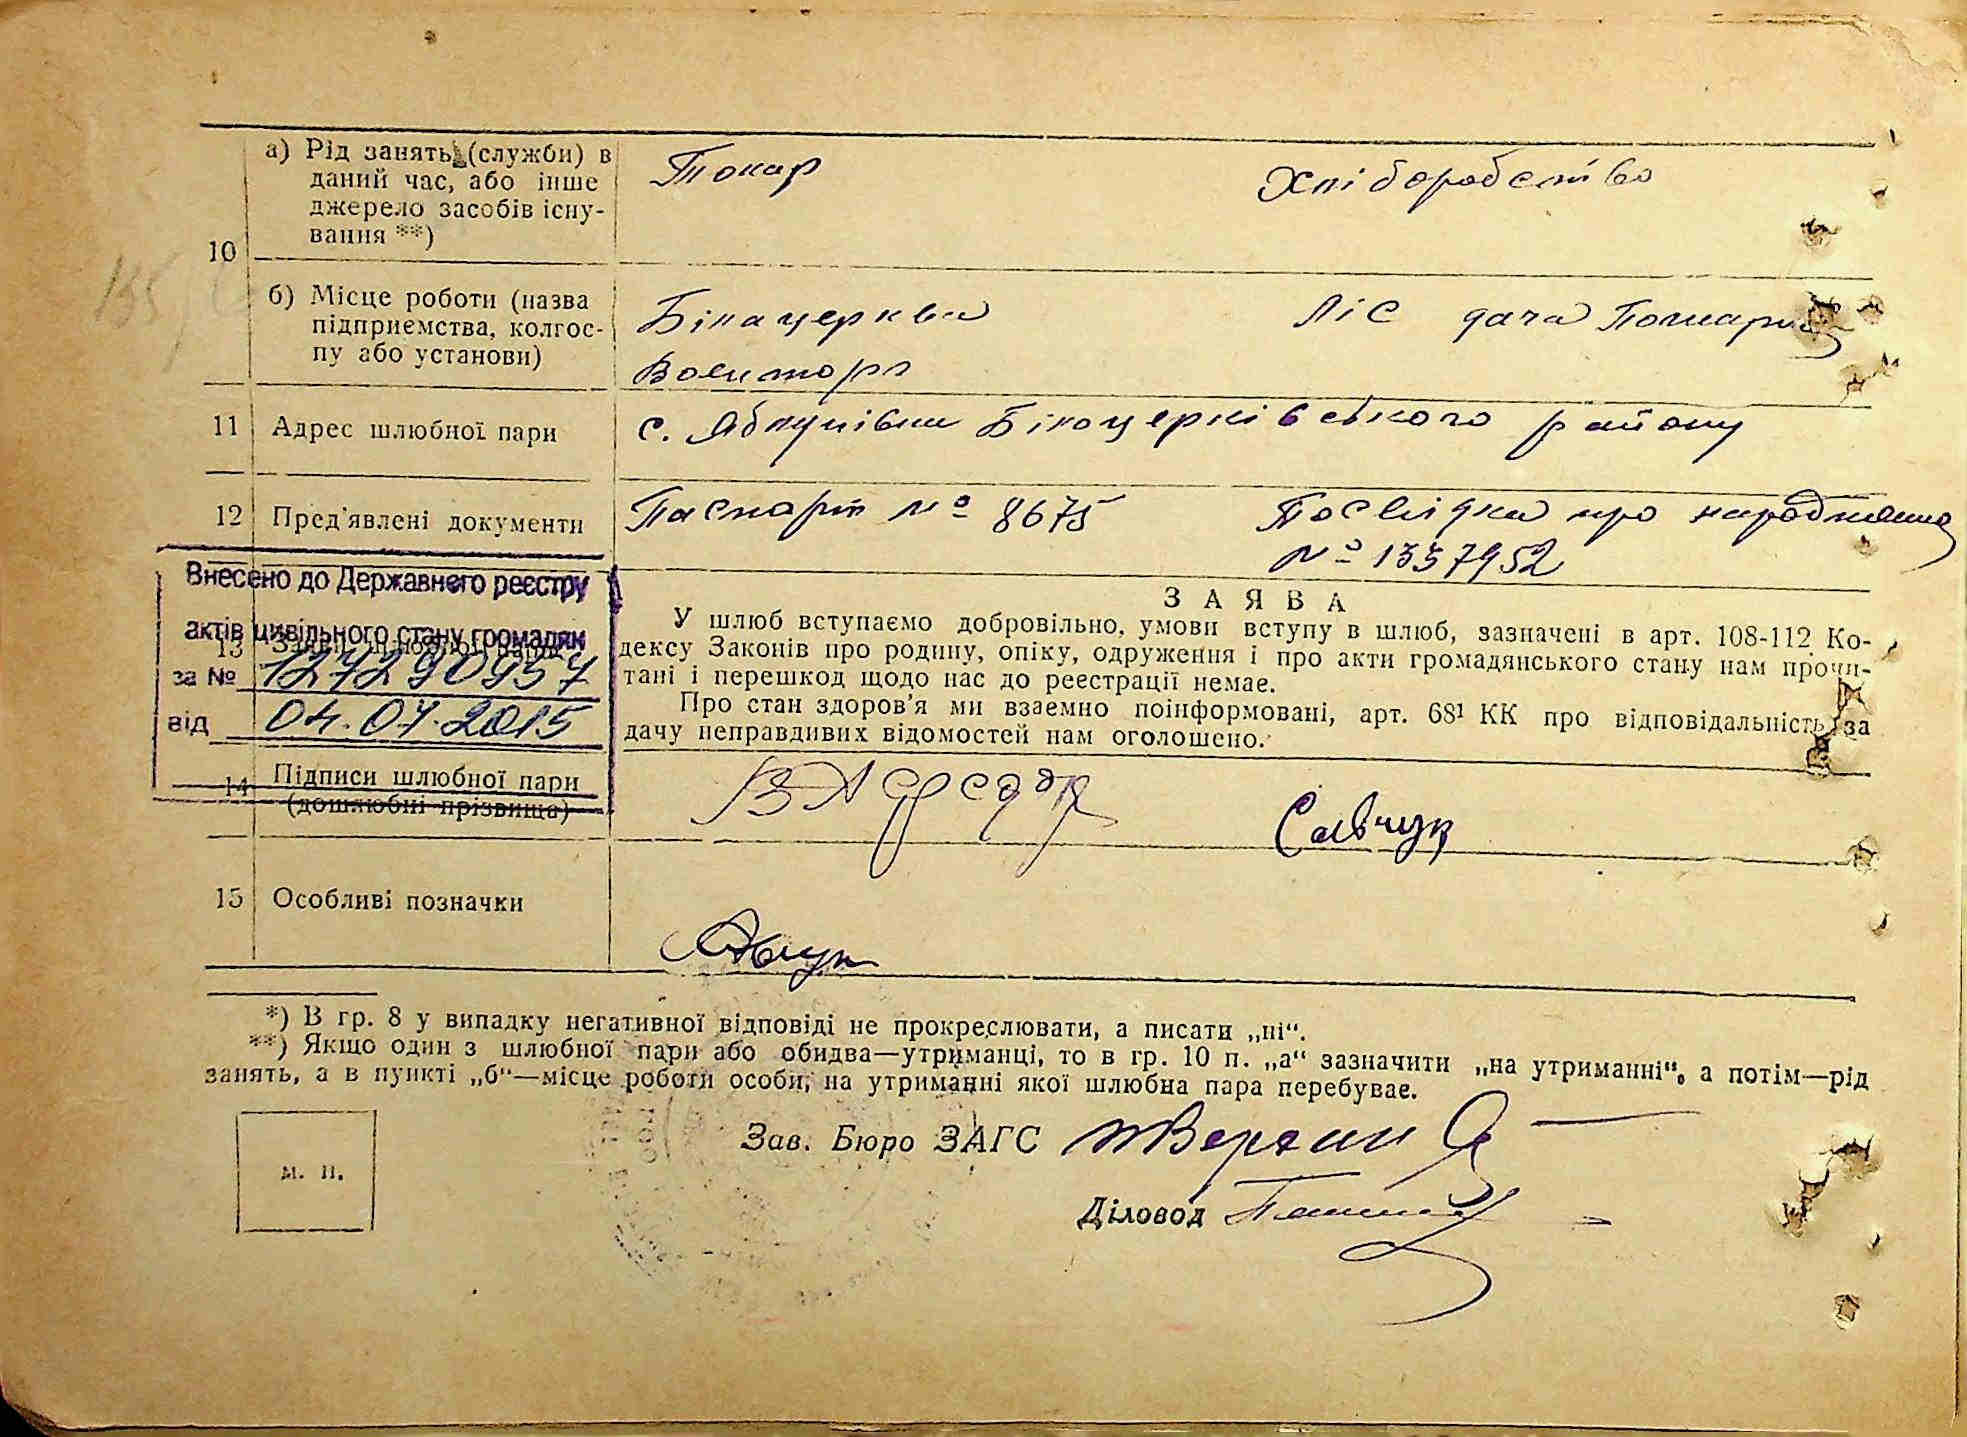 а) Рід занять (служби) в
даний час, або інше
джерело засобів існу-
вання **)
Токар
Хліборобство
10
б) Місце роботи (назва
підприємства, колгос-
пу або установи)
Білацерква
Воєнторг
Ліс дача Томари
11 Адрес шлюбної пари
с. Яблунівка Білоцерківського району
12 Пред'явлені документи
Паспорт № 8675
Посвідка про народження
№ 1337952
Внесено до Державнего реєстру
актів цивільного стану громадян
за № 127290957
від 04.07.2015
13
З А Я В А
У шлюб вступаємо добровільно, умови вступу в шлюб, зазначені в арт. 108-112 Ко-
дексу Законів про родину, опіку, одруження і про акти громадянського стану нам прочи-
тані і перешкод щодо нас до реєстрації немає.
Про стан здоров'я ми взаємно поінформовані, арт. 68¹ КК про відповідальність за
дачу неправдивих відомостей нам оголошено.
14 Підписи шлюбної пари
(дошлюбні прізвища)
Савчук
15 Особливі позначки
*) В гр. 8 у випадку негативної відповіді не прокреслювати, а писати „ні“.
**) Якщо один з шлюбної пари або обидва—утриманці, то в гр. 10 п. „а“ зазначити „на утриманні“, а потім—рід
занять, а в пункті „б“—місце роботи особи, на утриманні якої шлюбна пара перебуває.
м. п.
Зав. Бюро ЗАГС
Діловод